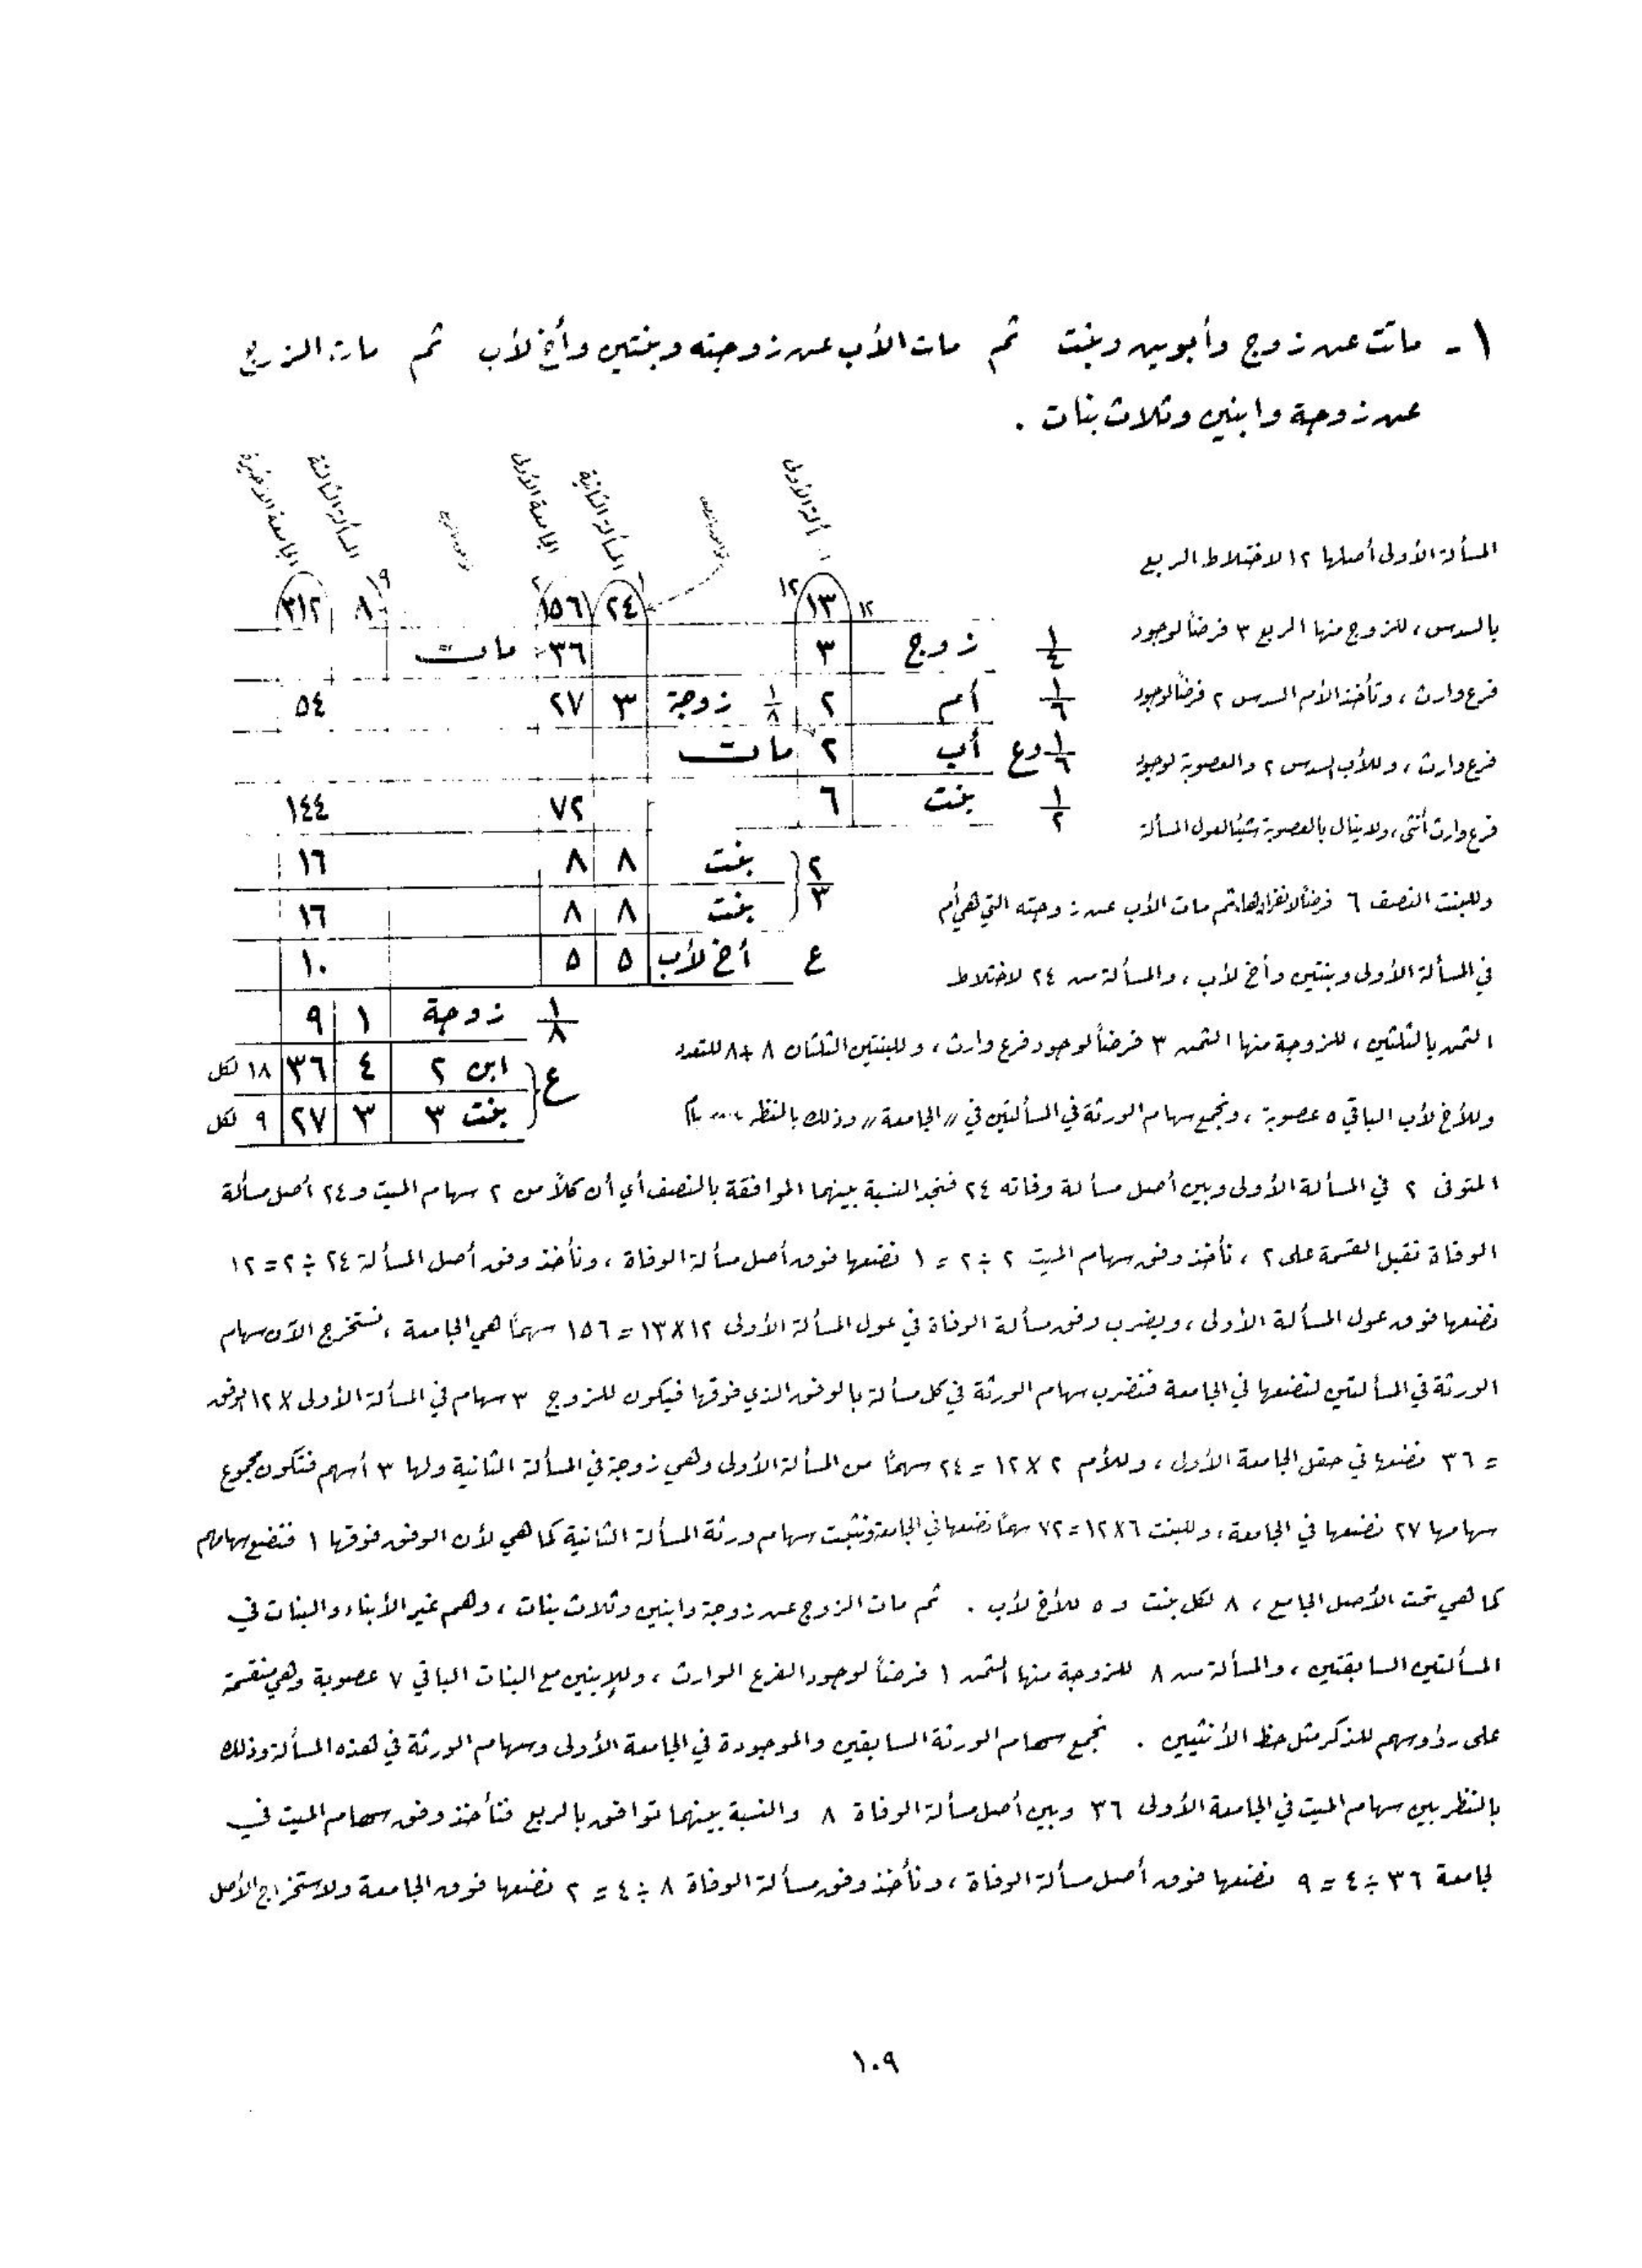 ١ - ماتت عن زوج وأبوين وبنت ثم مات الأب عن زوجته وبنتين وأخ لأب ثم مات الزوج
عن زوجة وابنين وثلاث بنات .
المسألة الأولى
المسألة الثانية
الجامعة الأولى
المسألة الثالثة
الجامعة الأخيرة
١٢ ١٣ ١٢ ١ ٢٤ ٢ ١٥٦ ٩ ٨ ٣١٢
١/٤ زوج ٣ ٣٦ مات
١/٦ أم ٢ ١/٨ زوجة ٣ ٢٧ ٥٤
١/٦ وع أب ٢ مات
١/٢ بنت ٦ ٧٢ ١٤٤
٢/٣ بنت ٨ ٨ ١٦
بنت ٨ ٨ ١٦
ع أخ لأب ٥ ٥ ١٠
١/٨ زوجة ١ ٩
ع ابن ٢ ٤ ٣٦ ١٨ لكل
بنت ٣ ٣ ٢٧ ٩ لكل
المسألة الأولى أصلها ١٢ لاختلاط الربع
بالسدس ، للزوج منها الربع ٣ فرضاً لوجود
فرع وارث ، وتأخذ الأم السدس ٢ فرضاً لوجود
فرع وارث ، وللأب السدس ٢ والعصوبة لوجود
فرع وارث أنثى ، ولا ينال بالعصوبة شيئا لعول المسألة
وللبنت النصف ٦ فرضاً لانفرادها ، ثم مات الأب عن زوجته التي هي أم
في المسألة الأولى وبنتين وأخ لأب ، والمسألة من ٢٤ لاختلاط
الثمن بالثلثين ، للزوجة منها الثمن ٣ فرضاً لوجود فرع وارث ، وللبنتين الثلثان ٨ + ٨ للتعدد
وللأخ لأب الباقي ٥ عصوبة ، ونجمع سهام الورثة في المسألتين في "الجامعة" وذلك بالنظر
المتوفى ٢ في المسألة الأولى وبين أصل مسألة وفاته ٢٤ فنجد النسبة بينهما الموافقة بالنصف أي أن كلاً من ٢ سهام الميت و ٢٤ أصل مسألة
الوفاة تقبل القسمة على ٢ ، نأخذ وفق سهام الميت ٢ ÷ ٢ = ١ نضعها فوق أصل مسألة الوفاة ، ونأخذ وفق أصل المسألة ٢٤ ÷ ٢ = ١٢
نضعها فوق عول المسألة الأولى ، ويضرب وفق مسألة الوفاة في عول المسألة الأولى ١٢ X ١٣ = ١٥٦ سهماً هي الجامعة ، نستخرج الآن سهام
الورثة في المسألتين لنضعها في الجامعة فنضرب سهام الورثة في كل مسألة بالوفق الذي فوقها فيكون للزوج ٣ سهام في المسألة الأولى X ١٢ الوفق
= ٣٦ نضعها في حقل الجامعة الأولى ، وللأم ٢ X ١٢ = ٢٤ سهماً من المسألة الأولى وهي زوجة في المسألة الثانية ولها ٣ أسهم فتكون مجموع
سهامها ٢٧ نضعها في الجامعة ، وللبنت ٦ X ١٢ = ٧٢ سهماً نضعها في الجامعة ونثبت سهام ورثة المسألة الثانية كما هي لأن الوفق فوقها ١ فنضع سهامهم
كما هي تحت الأصل الجامع ، ٨ لكل بنت و ٥ للأخ لأب . ثم مات الزوج عن زوجة وابنين وثلاث بنات ، وهم غير الأبناء والبنات في
المسألتين السابقتين ، والمسألة من ٨ للزوجة منها الثمن ١ فرضاً لوجود الفرع الوارث ، وللإبنين مع البنات الباقي ٧ عصوبة وهي منقسمة
على رؤوسهم للذكر مثل حظ الأنثيين . نجمع سهام الورثة السابقين والموجودة في الجامعة الأولى وسهام الورثة في هذه المسألة وذلك
بالنظر بين سهام الميت في الجامعة الأولى ٣٦ وبين أصل مسألة الوفاة ٨ والنسبة بينهما توافق بالربع فنأخذ وفق سهام الميت في
لجامعة ٣٦ ÷ ٤ = ٩ نضعها فوق أصل مسألة الوفاة ، ونأخذ وفق مسألة الوفاة ٨ ÷ ٤ = ٢ نضعها فوق الجامعة ولاستخراج الأصل
١٠٩